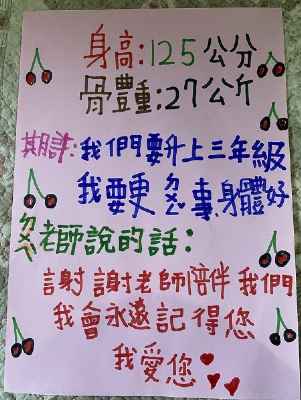 身高:125公分
骨豊重:27公斤
期許:我們要升上三年級
我要更ㄉㄨㄥˇ事,身體好
ㄉㄨㄟˋ老師說的話:
謝謝老師陪伴我們
我會永遠記得您
我愛您